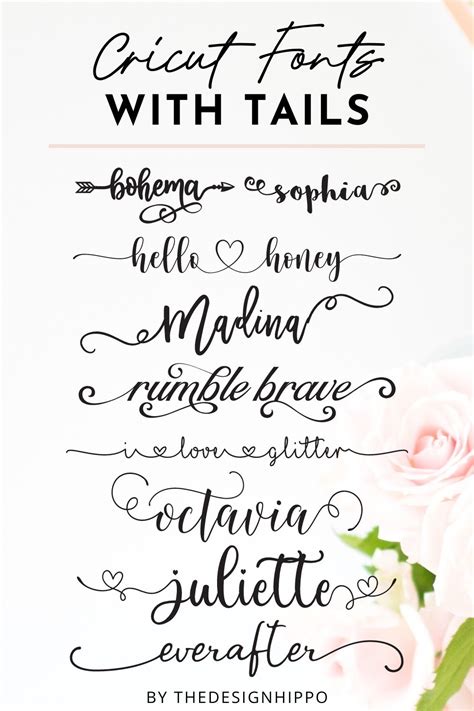 Cricut Fonts
WITH TAILS
bohema sophia
hello honey
Madina
rumble brave
i love glitter
octavia
juliette
everafter
BY THEDESIGNHIPPO